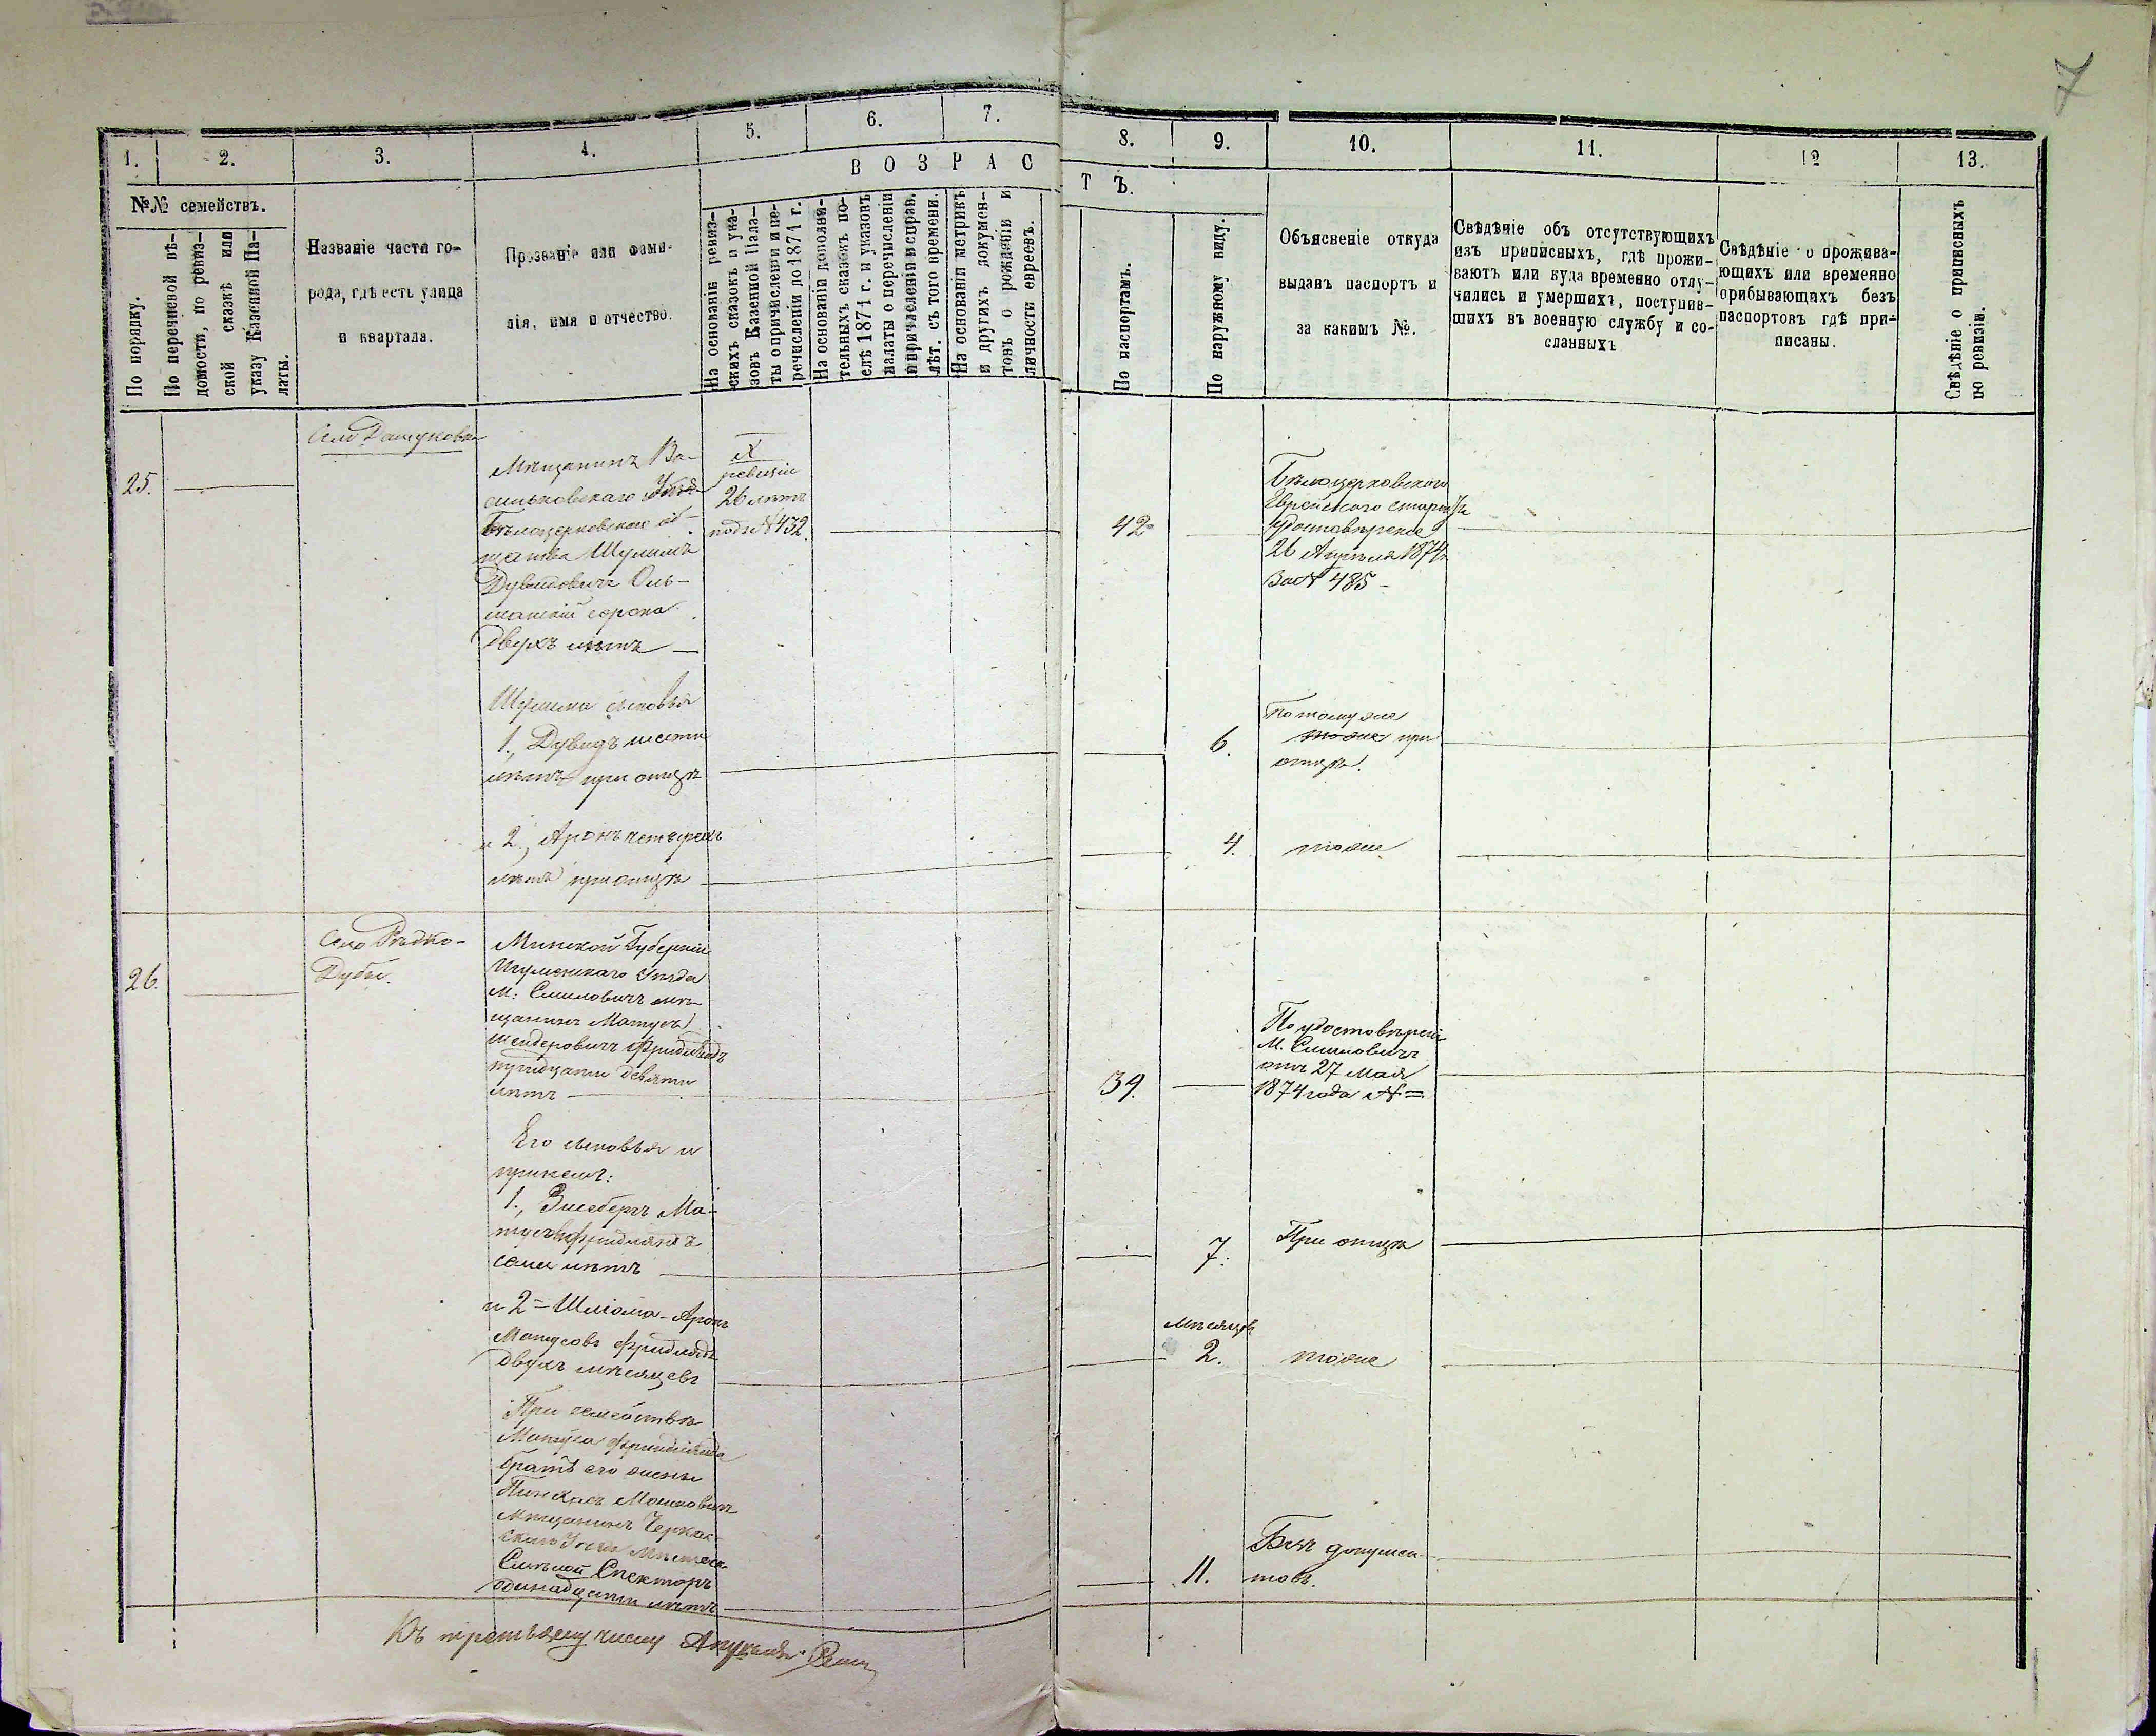 7
1.
2.
3.
4.
5.
6.
7.
8.
9.
10.
11.
12
13.
В О З Р А С
Т Ъ.
№№ семействъ.
По порядку.
По перечневой вѣ-
домости, по ревиз-
ской сказкѣ или
указу Казенной Па-
латы.
Названіе части го-
рода, гдѣ есть улица
и квартала.
Прозваніе или фами-
лія, имя и отчество.
На основаніи ревиз-
скихъ сказокъ и ука-
зовъ Казенной Пала-
ты о причисленіи и пе-
речисленіи до 1871 г.
На основаніи дополни-
тельныхъ сказокъ по-
слѣ 1871 г. и указовъ
палаты о перечисленіи
и причисленіи и справ.
лѣт. съ того времени.
На основаніи метрикъ
и другихъ докумен-
товъ о рожденіи и
личности евреевъ.
По паспортамъ.
По наружному виду.
Объясненіе откуда
выданъ паспортъ и
за какимъ №.
Свѣдѣніе объ отсутствующихъ
изъ приписныхъ, гдѣ прожи-
ваютъ или куда временно отлу-
чились и умершихъ, поступив-
шихъ въ военную службу и со-
сланныхъ
Свѣдѣніе о прожива-
ющихъ или временно
прибывающихъ безъ
паспортовъ гдѣ при-
писаны.
Свѣдѣніе о приписныхъ
по ревизіи.
Село Дашуковка
25.
Мѣщанинъ Ва-
сильковскаго Уѣзда
Бѣлоцерковскаго об-
щества Шулимъ
Дувидовичъ Оль-
шанскій сорока
двухъ лѣтъ
X
ревизіи
26 лѣтъ
подъ № 432.
42
Бѣлоцерковскаго
Еврейскаго
удостовѣреніе
26 Апрѣля 1874 г.
За № 485
Шулима сыновья
1., Дувидъ шести
лѣтъ при отцѣ
6.
По тому же
тоже при
отцѣ.
и 2., Аронъ четырехъ
лѣтъ при отцѣ
4.
тоже
26.
Село Рѣдко-
Дубы.
Минской Губерніи
Игуменскаго Уѣзда
М: Смиловичъ мѣ-
щанинъ Матусъ
Шендеровичъ Фридляндъ
тридцати девяти
лѣтъ
39.
По удостовѣренію
М. Смиловичъ
отъ 27 Мая
1874 года № =
Его сыновья и
при немъ:
1., Ма-
тусовъ Фридляндъ
семи лѣтъ
7.
При отцѣ
и 2 = Шліома-Аронъ
Матусовъ Фридляндъ
двухъ мѣсяцевъ
мѣсяцевъ
2.
тоже
При семействѣ
Матуса Фридлянда
братъ его жены
Пинхасъ Мошковичъ
Мѣщанинъ Черкас-
скаго Уѣзда Мѣстечка
Смѣлой Спекторъ
одинадцати лѣтъ
11.
Безъ докумен-
товъ.
Къ третьему числу Апрѣля